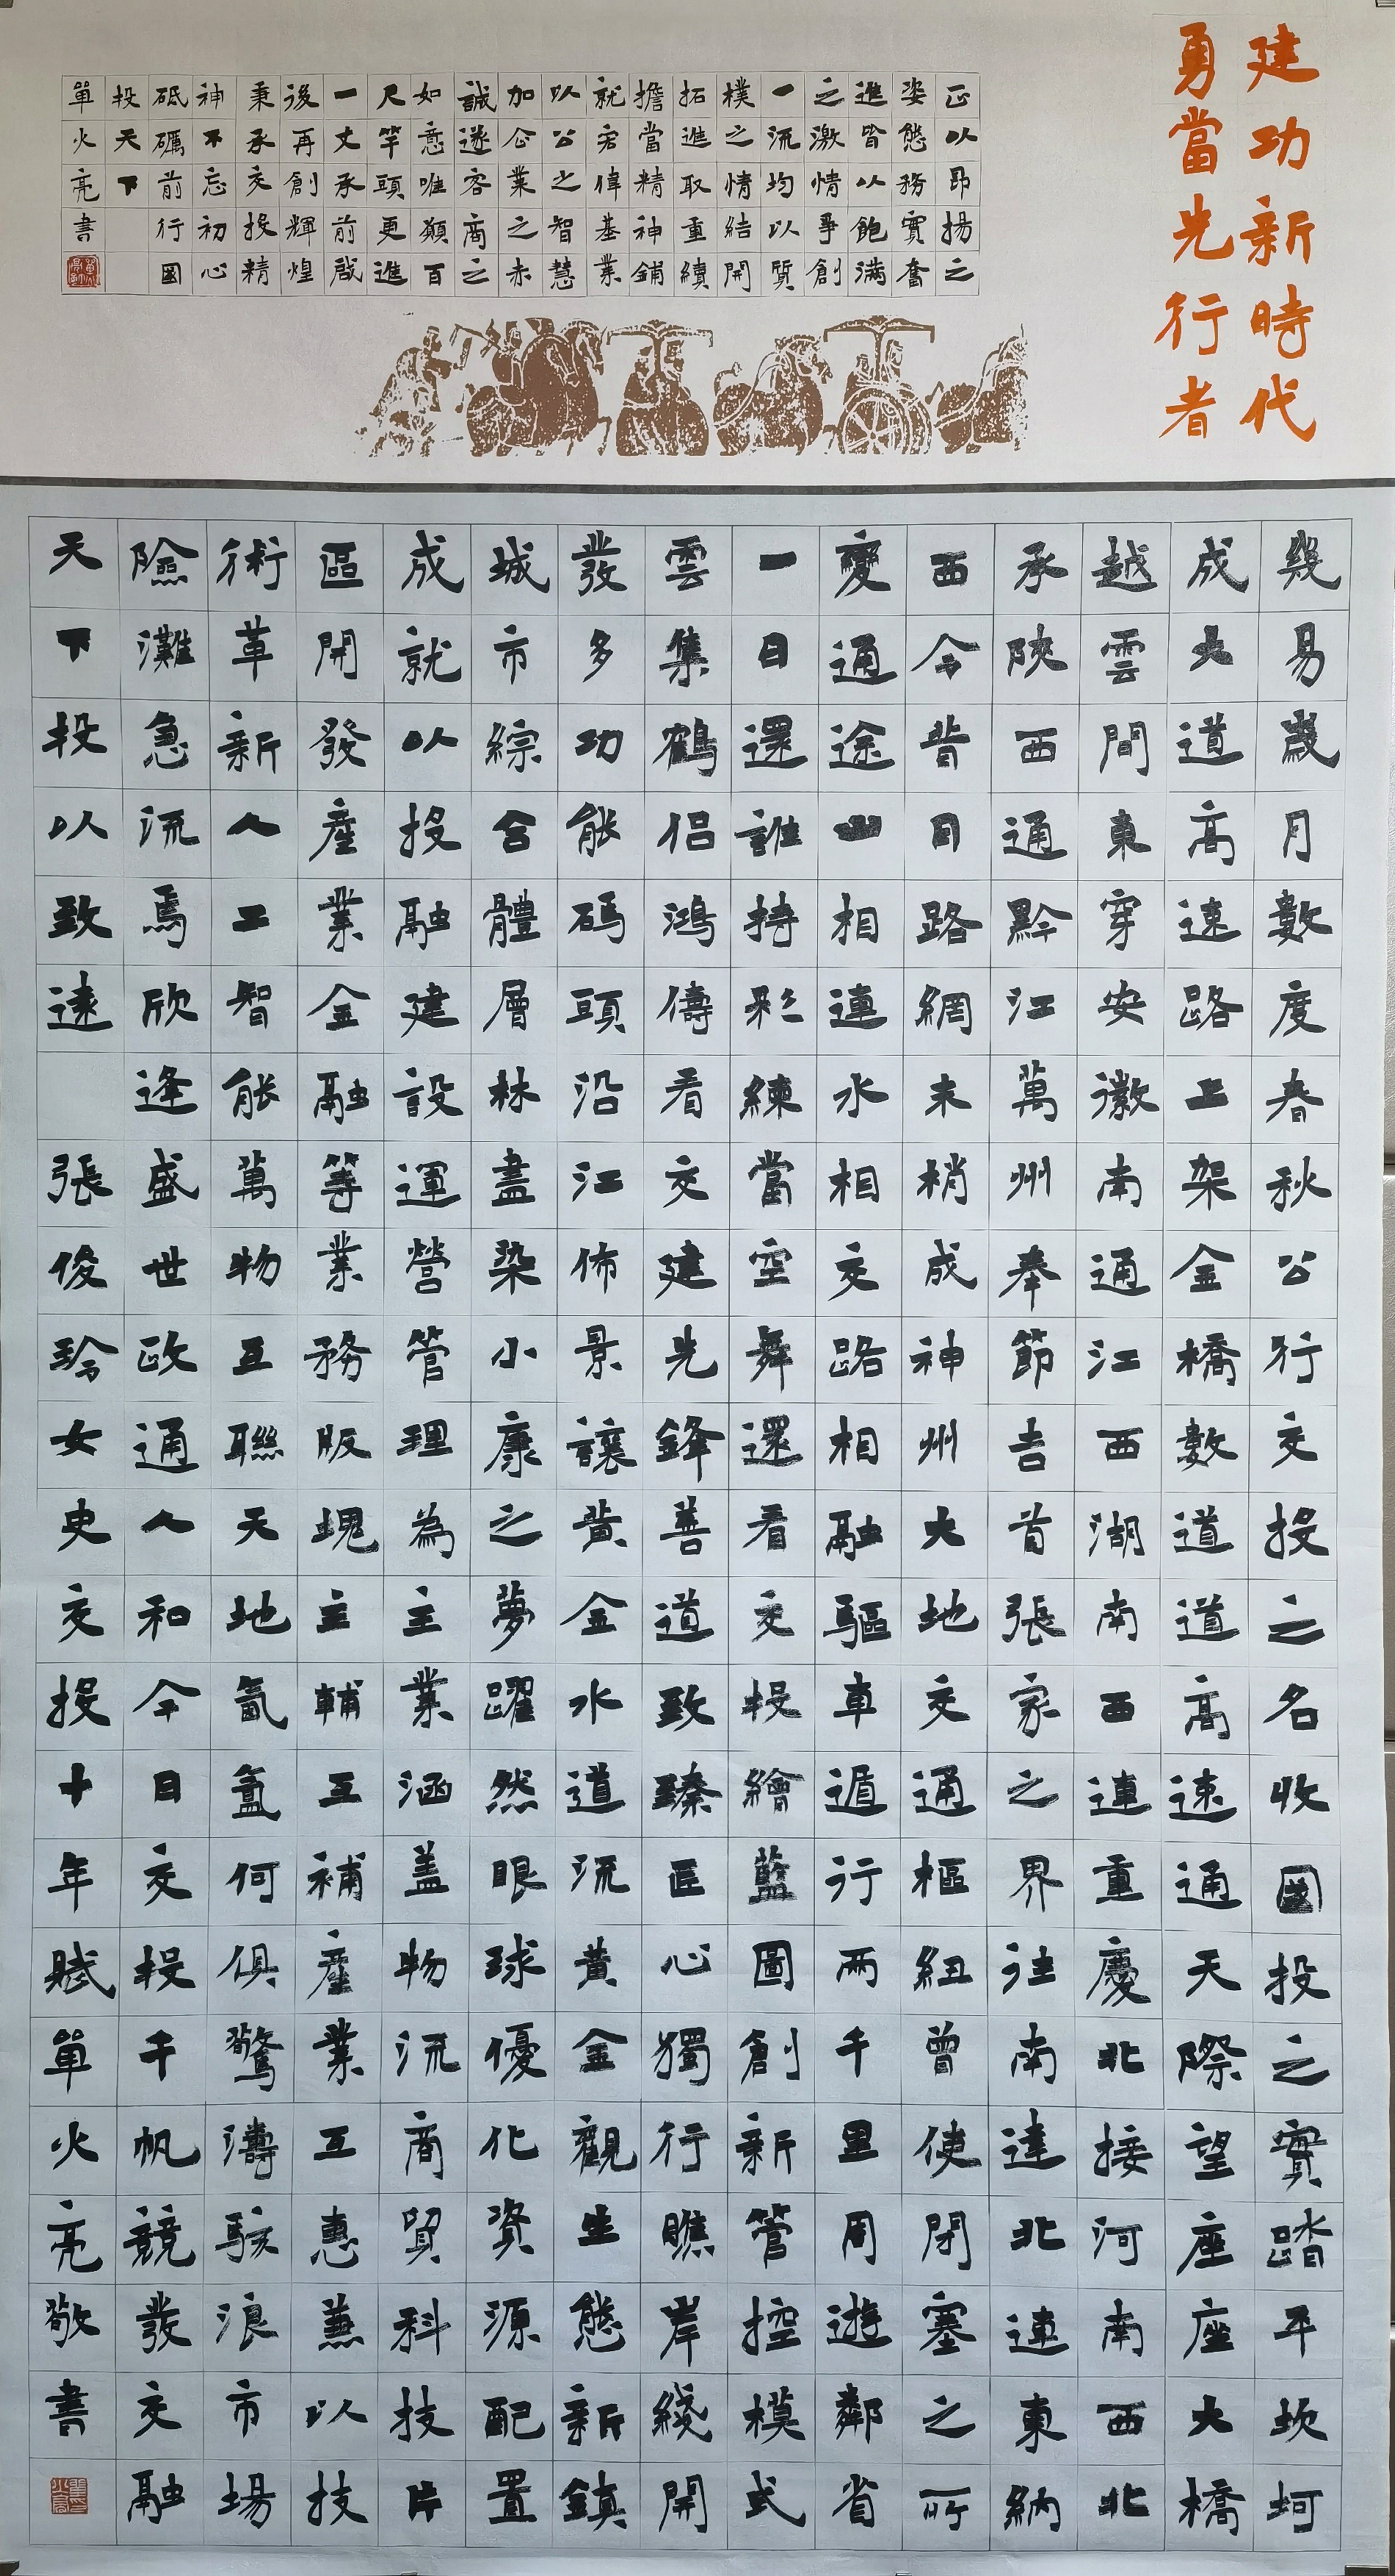 建功新時代
勇當先行者
正以昂揚之
姿態務實奮
進皆以飽滿
之激情爭創
一流均以質
樸之情結開
拓進取重續
擔當精神鋪
就宏偉基業
以公之智慧
加企業之赤
誠遂容商之
如意唯願百
尺竿頭更進
一丈承前啟
後再創輝煌
秉承交投精
神不忘初心
砥礪前行國
投天下
單火亮書
幾易歲月數度春秋公行交投之名收國投之實踏平坎坷
成大道高速路上架金橋數道道高速通天際望座座大橋
越雲間東穿安徽南通江西湖南西連重慶北接河南西北
承陝西通黔江萬州奉節吉首張家之界往南達北連東納
西今昔日路網末梢成神州大地交通樞紐曾使閉塞之所
變通途山相連水相交路相融驅車遁行兩千里周遊鄰省
一日還誰持彩練當空舞還看交投繪藍圖創新管控模式
雲集鶴侶鴻儔看交建先鋒善道致臻匠心獨行瞧岸綫開
發多功能碼頭沿江佈景讓黃金水道流黄金觀生態新鎮
城市綜合體層林盡染小康之夢躍然眼球優化資源配置
成就以投融建設運營管理為主業涵盖物流商貿科技片
區開發產業金融等業務版塊主輔互補產業互惠兼以技
術革新人工智能萬物互聯天地氤氲何俱驚濤駭浪市場
險灘急流焉欣逢盛世政通人和今日交投千帆競發交融
天下投以致遠 張俊玲女史交投十年賦單火亮敬書